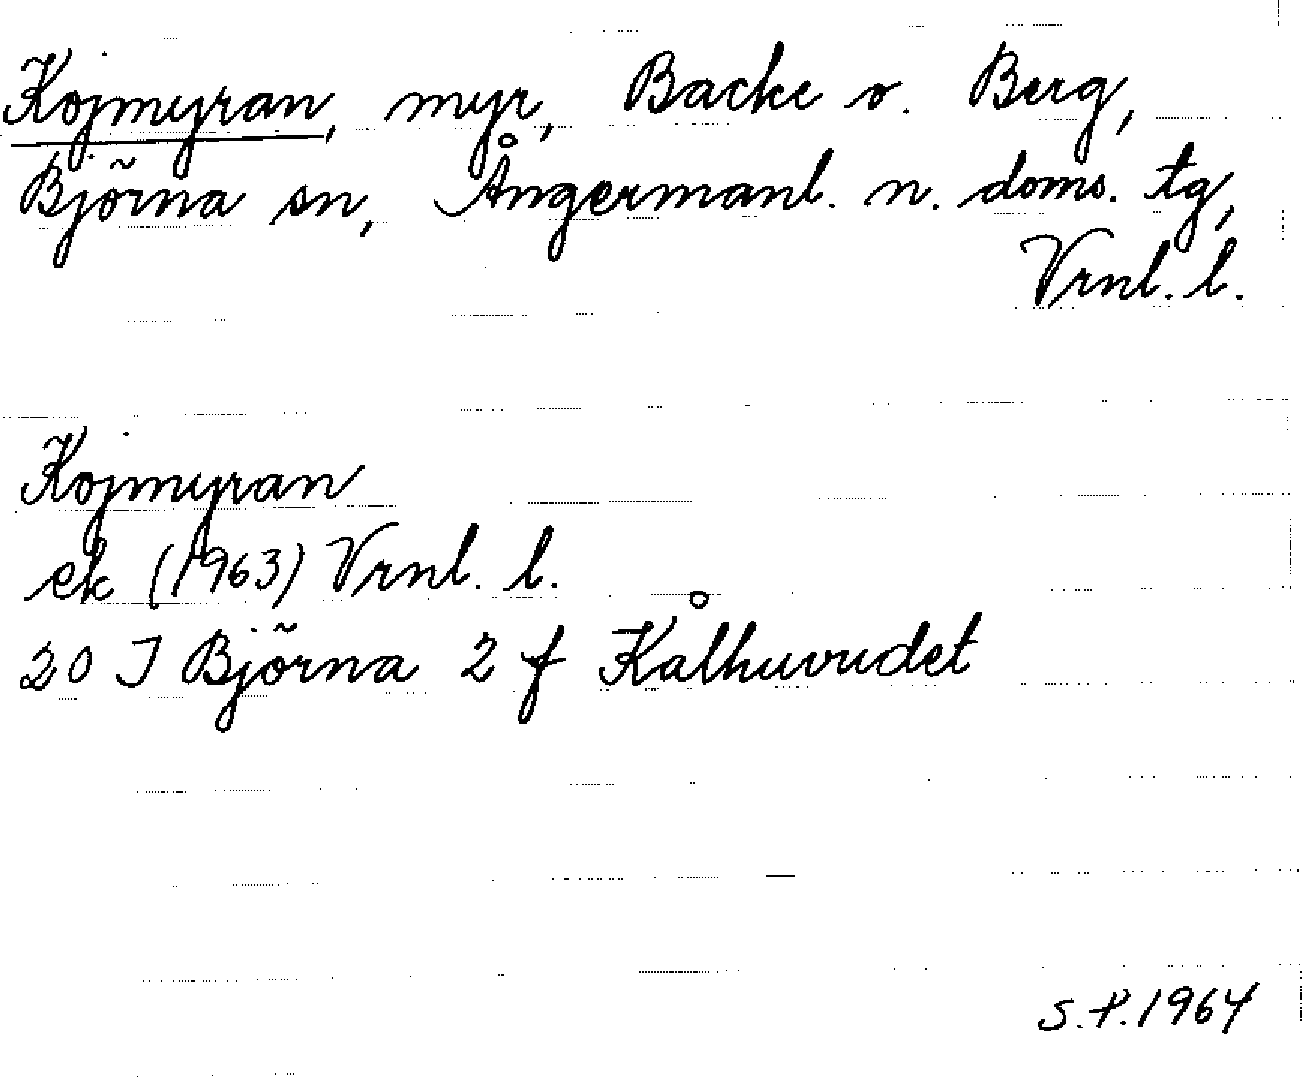 Kojmyran, myr, Backe o. Berg,
Björna sn, Ångermanl. n. doms. tg,
Vrnl. l.
Kojmyran
ek (1963) Vrnl. l.
20 J Björna 2 f Kålhuvudet
S.P. 1964